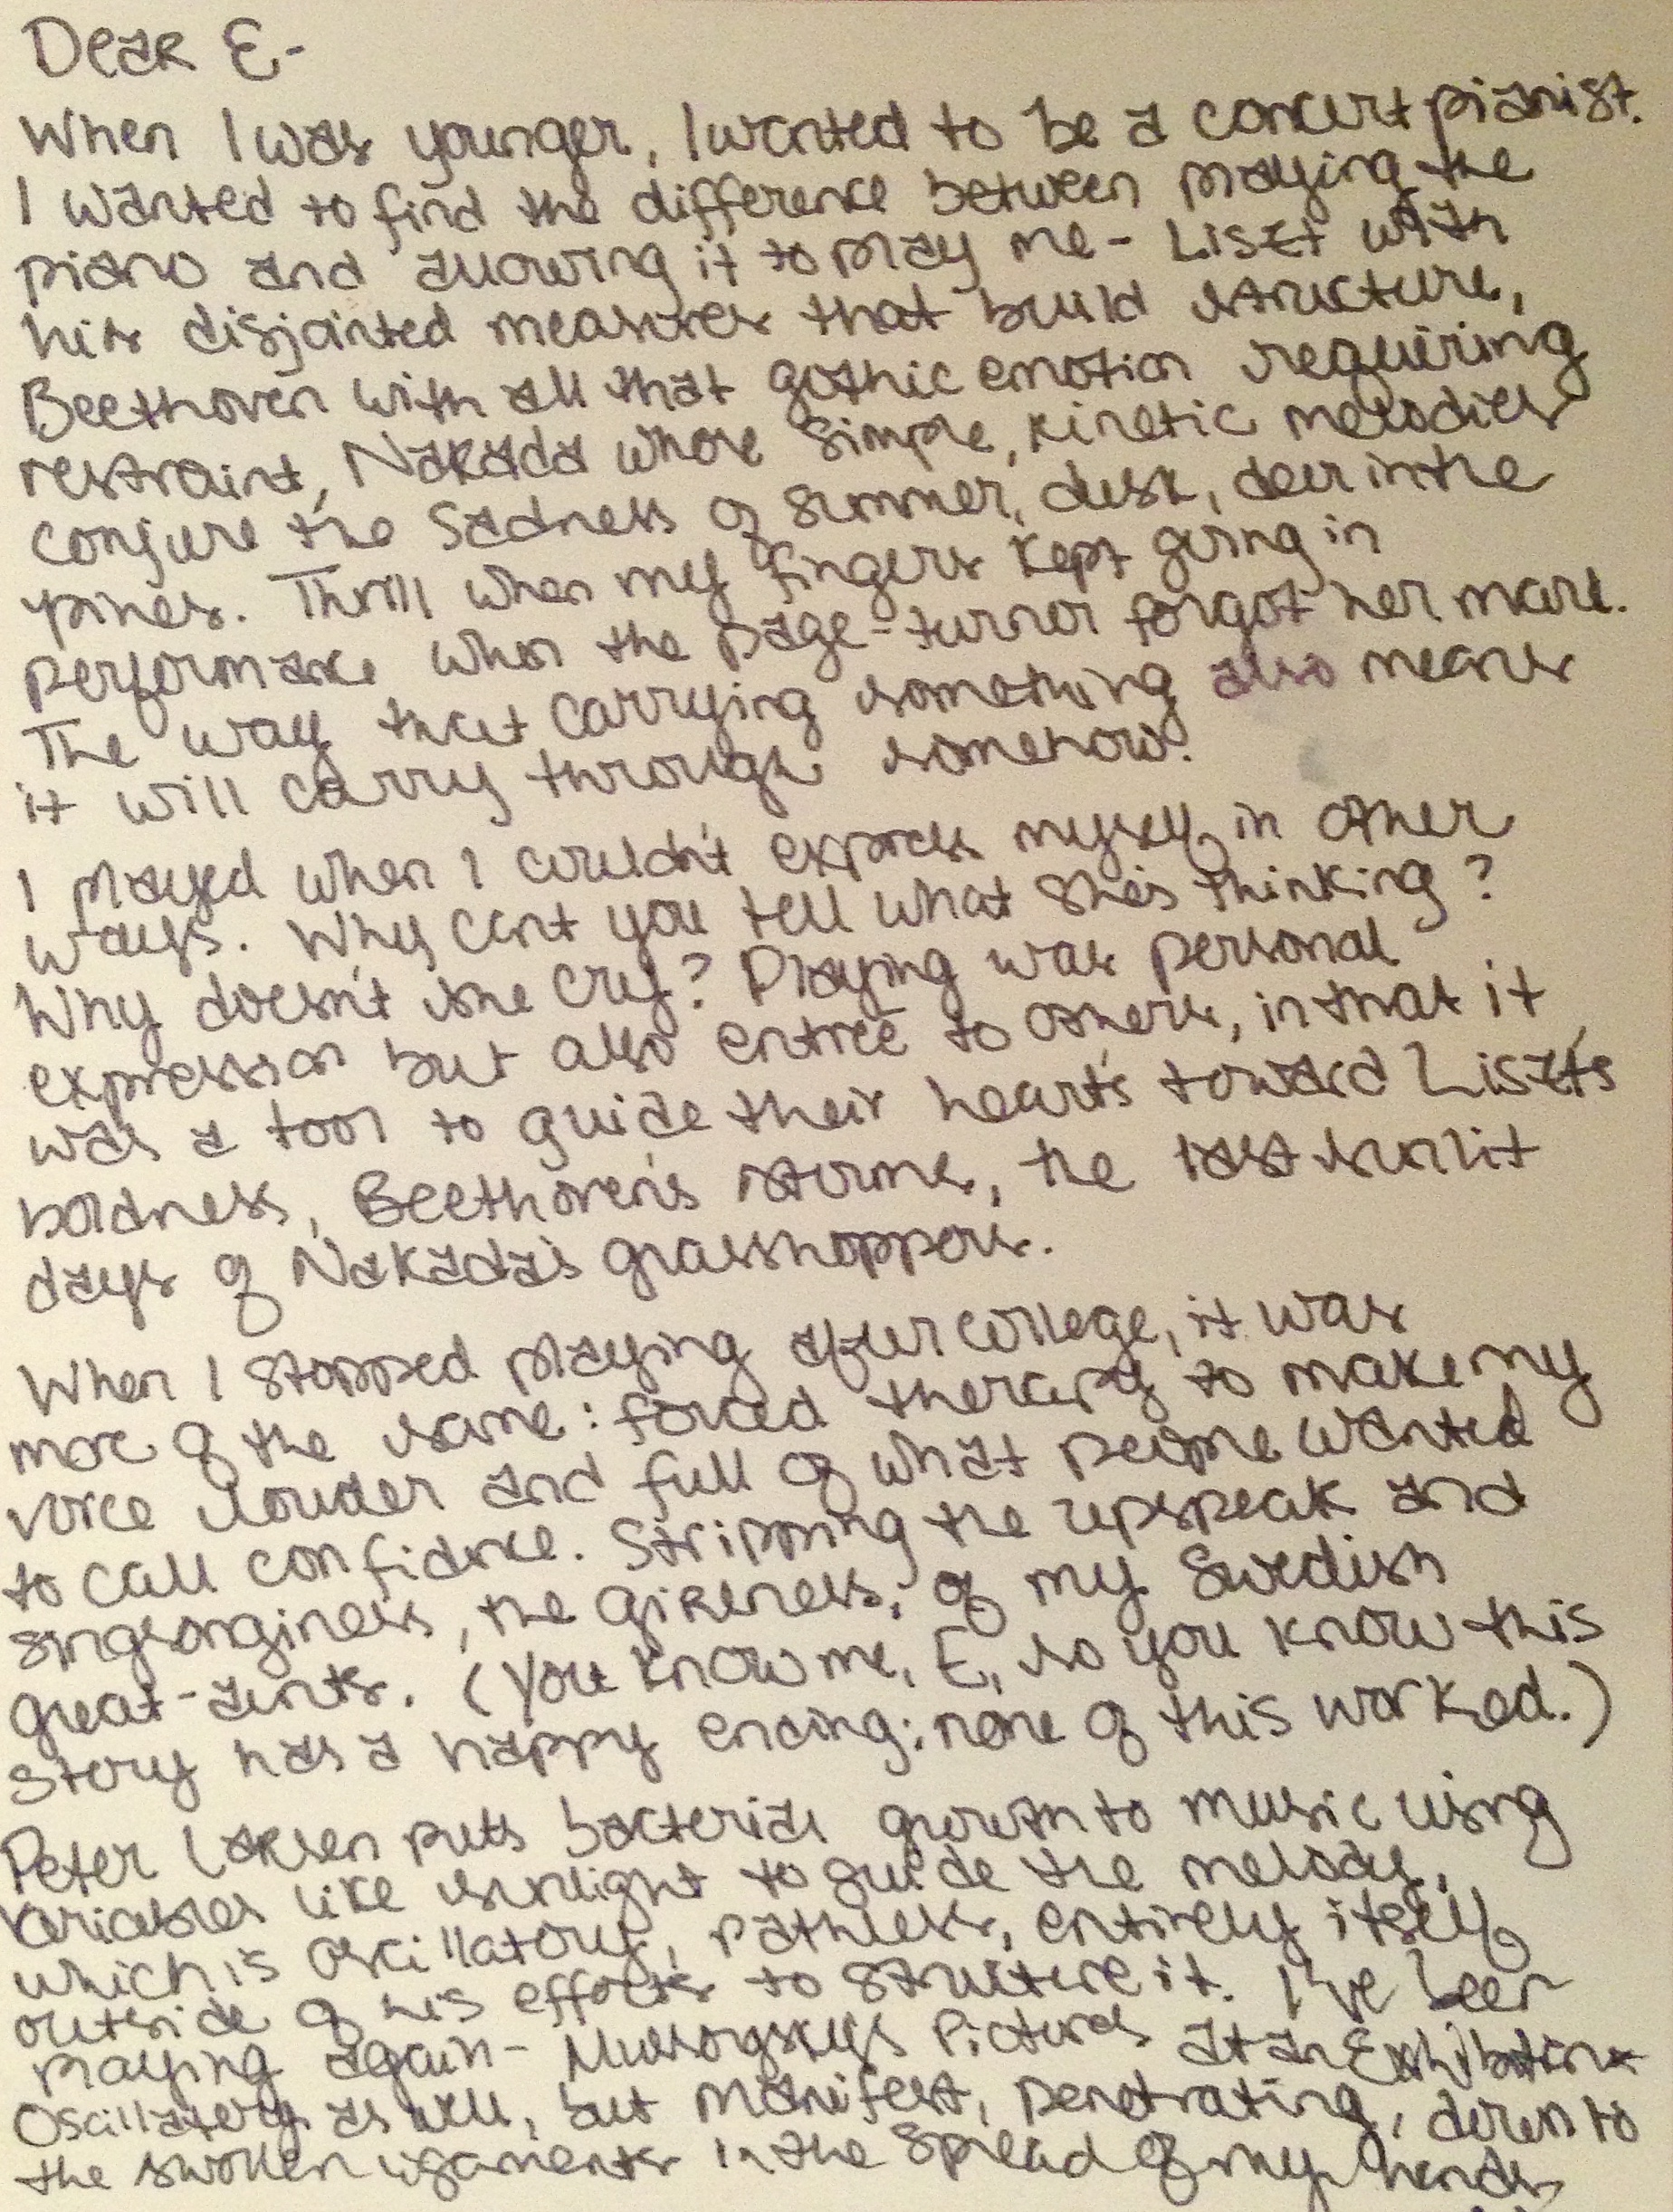 Dear E-
When I was younger, I wanted to be a concert pianist.
I wanted to find the difference between playing the
piano and allowing it to play me - Liszt with
his disjointed measures that build structure,
Beethoven with all that gothic emotion requiring
restraint, Nakada whose simple, kinetic melodies
conjure the sadness of summer, dusk, deer in the
pines. Thrill when my fingers kept going in
performance when the page-turner forgot her mark.
The way that carrying something also means
it will carry through somehow.
I played when I couldn't express myself in other
ways. Why can't you tell what she's thinking?
Why doesn't she cry? Playing was personal
expression but also entrée to others, in that it
was a tool to guide their hearts toward Liszt's
boldness, Beethoven's storms, the last sunlit
days of Nakada's grasshoppers.
When I stopped playing after college, it was
more of the same: forced therapy to make my
voice louder and full of what people wanted
to call confidence. Stripping the upspeak and
singsonginess, the girlness, of my Swedish
great-aunts. (You know me, E, so you know this
story has a happy ending: none of this worked.)
Peter Larsen puts bacterial growth to music using
variables like sunlight to guide the melody,
which is oscillatory, pathless, entirely itself
outside of his efforts to structure it. I've been
playing again - Mussorgsky's Pictures at an Exhibition
Oscillatory as well, but manifest, penetrating, down to
the swollen ligaments in the spread of my hands